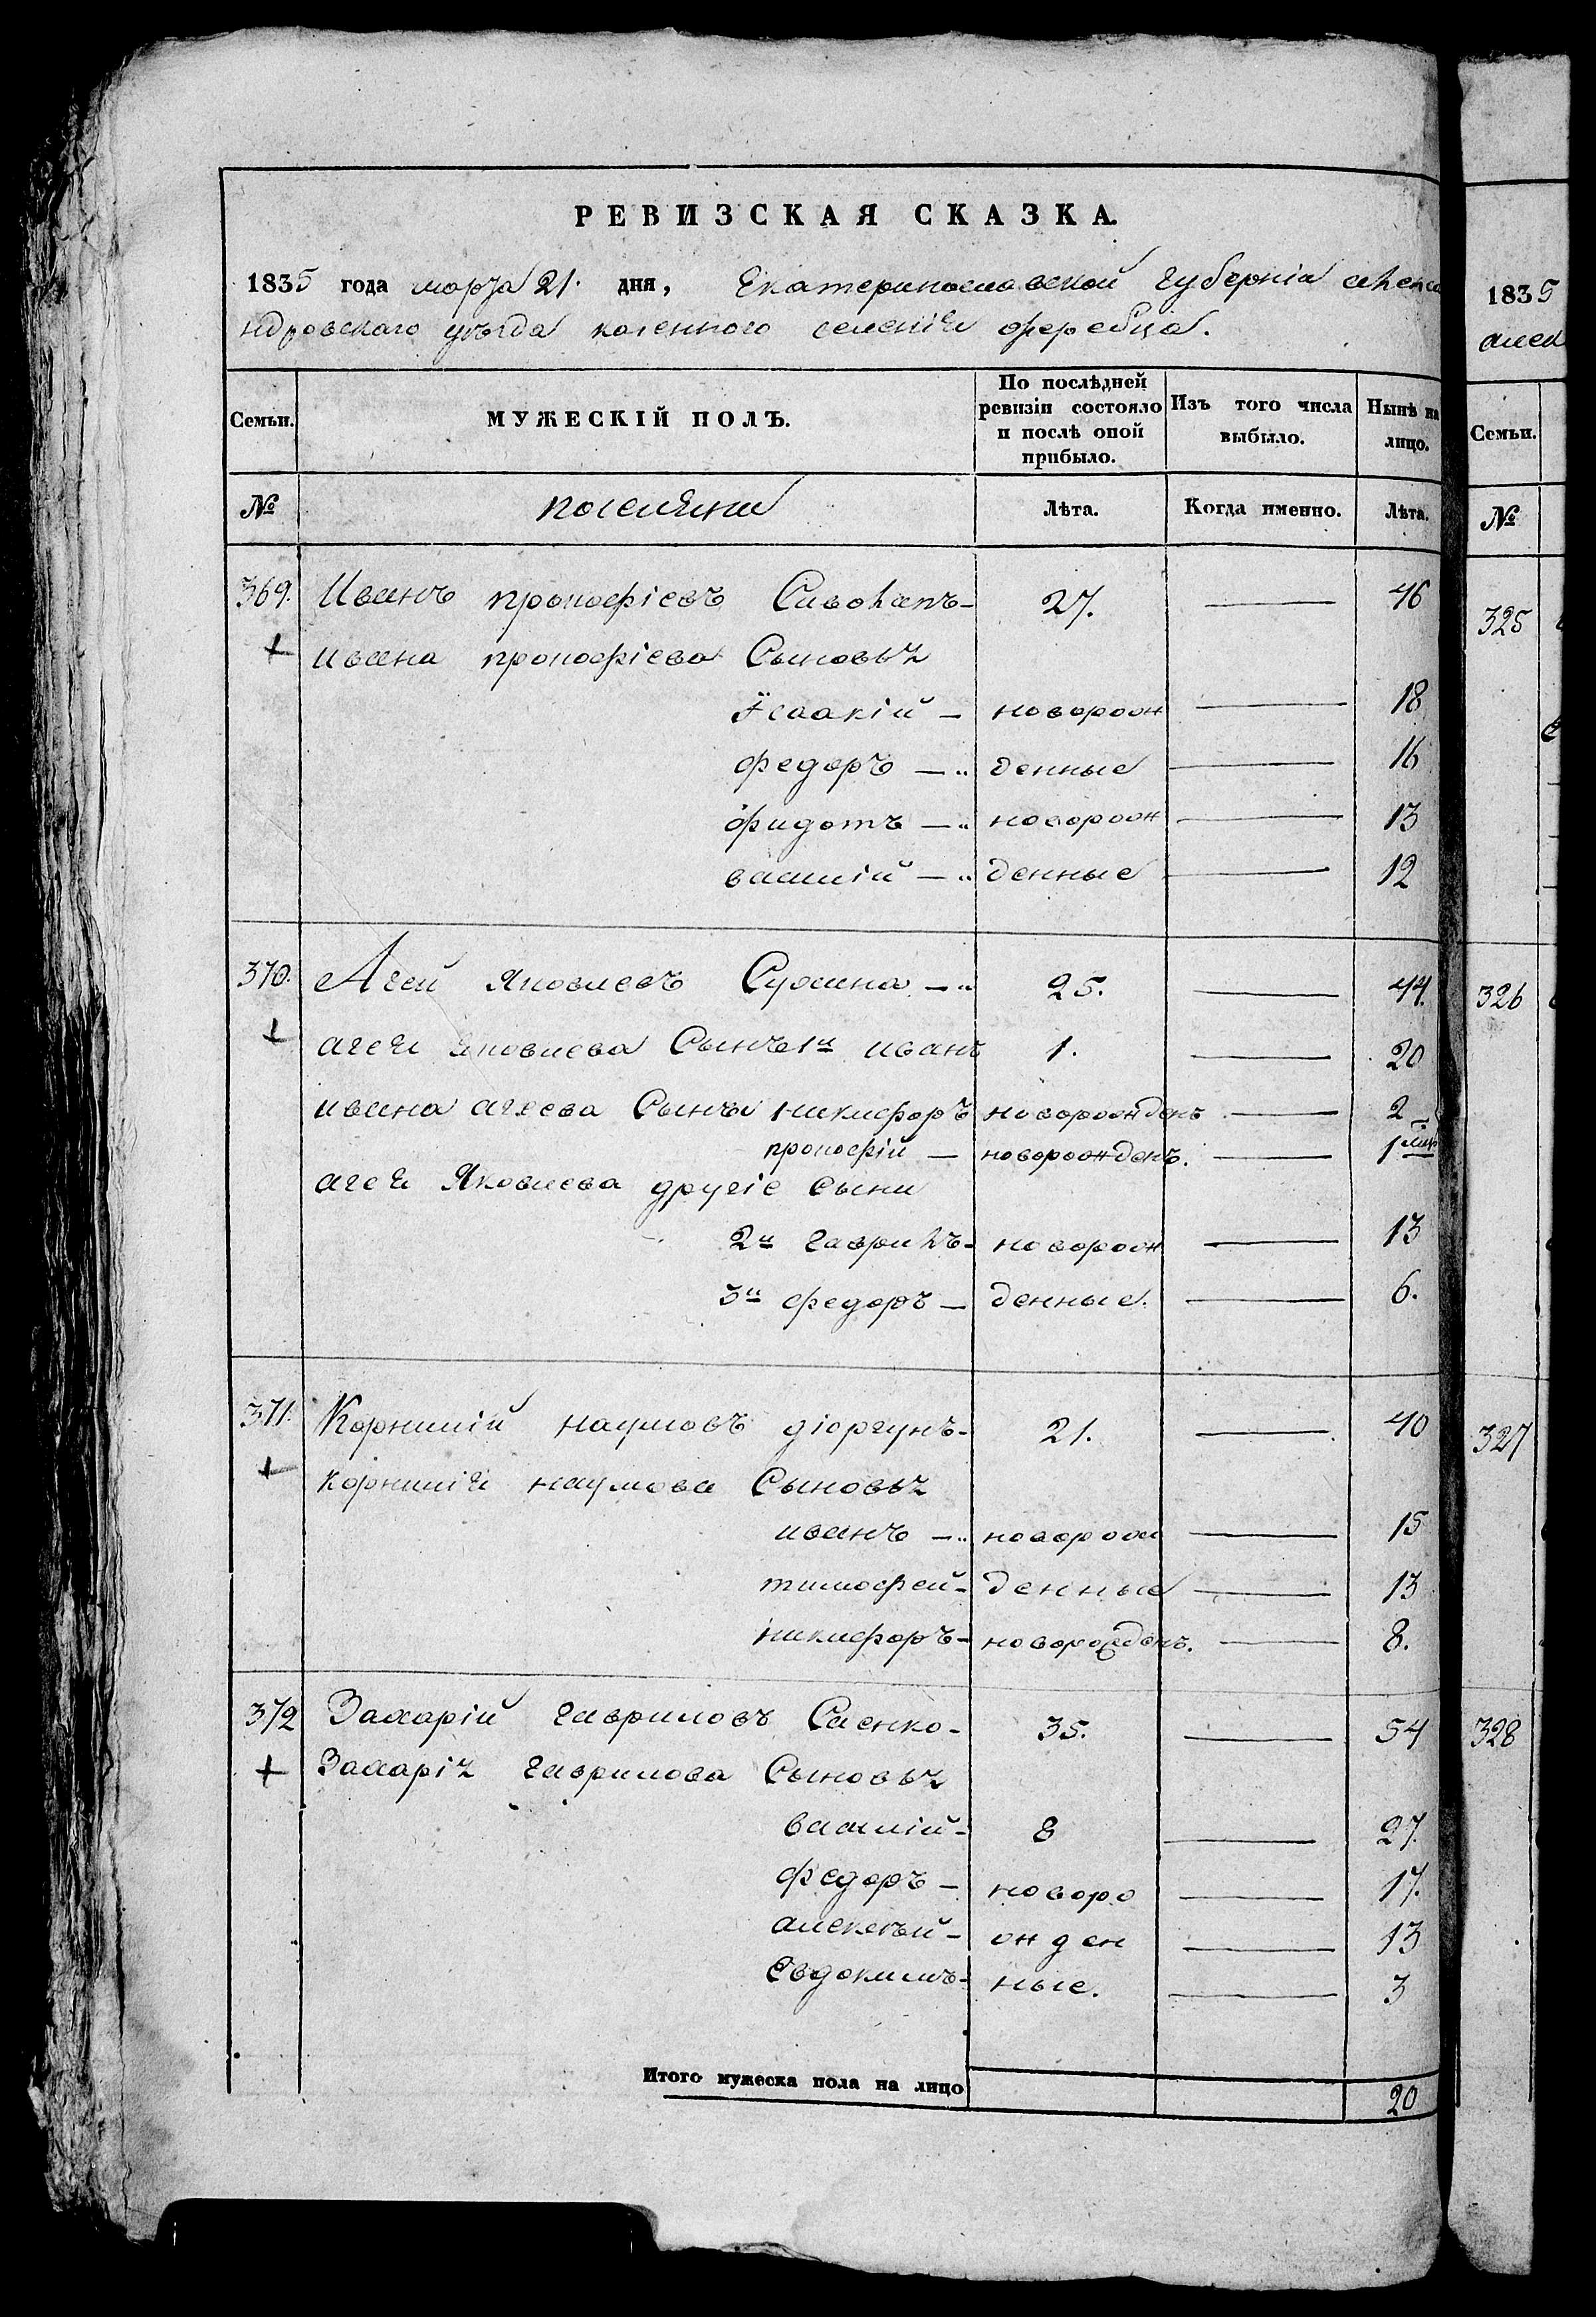 РЕВИЗСКАЯ СКАЗКА.
1835 года марта 21. дня, Екатеринославской губерніи алекса
ндровскаго уѣзда казенного селенія жеребца.
Семьи.
МУЖЕСКІЙ ПОЛЪ.
По послѣдней ревизіи состояло и послѣ оной прибыло.
Изъ того числа выбыло.
Нынѣ на лицо.
№ поселяни Лѣта. Когда именно. Лѣта.
369. Иванъ прокофіевъ Сивокапъ 27. — 46
+ ивана прокофіева Сыновья
Ісаакій — новорож — 18
федоръ — денные — 16
фидотъ — новорож — 13
василій — денные — 12
370. Агей Яковлевъ Сухина 25. — 44.
+ агея яковлева Сынъ 1й иванъ 1. — 20
ивана агеева Сыны никифоръ новорожденъ — 2
прокофій — новорожденъ. — 1 мѣс
агея Яковлева другіе Сыни
2й гаврилъ — новорож — 13
3й федоръ — денные. — 6.
371. Корнилій наумовъ діоргунъ 21. — 40
+ корнилія наумова Сыновья
иванъ — новорож — 15
тимофей — денные — 13
никифоръ — новорожденъ. — 8.
372 Захарій гавриловъ Саенко 35. — 54
+ Захарія гаврилова Сыновья
василій 8 — 27.
федоръ — новоро — 17.
алексѣй — жден — 13
Евдокимъ ные. — 3
Итого мужеска пола на лицо 20
1835
алек
Семьи.
№
325
326
327
328